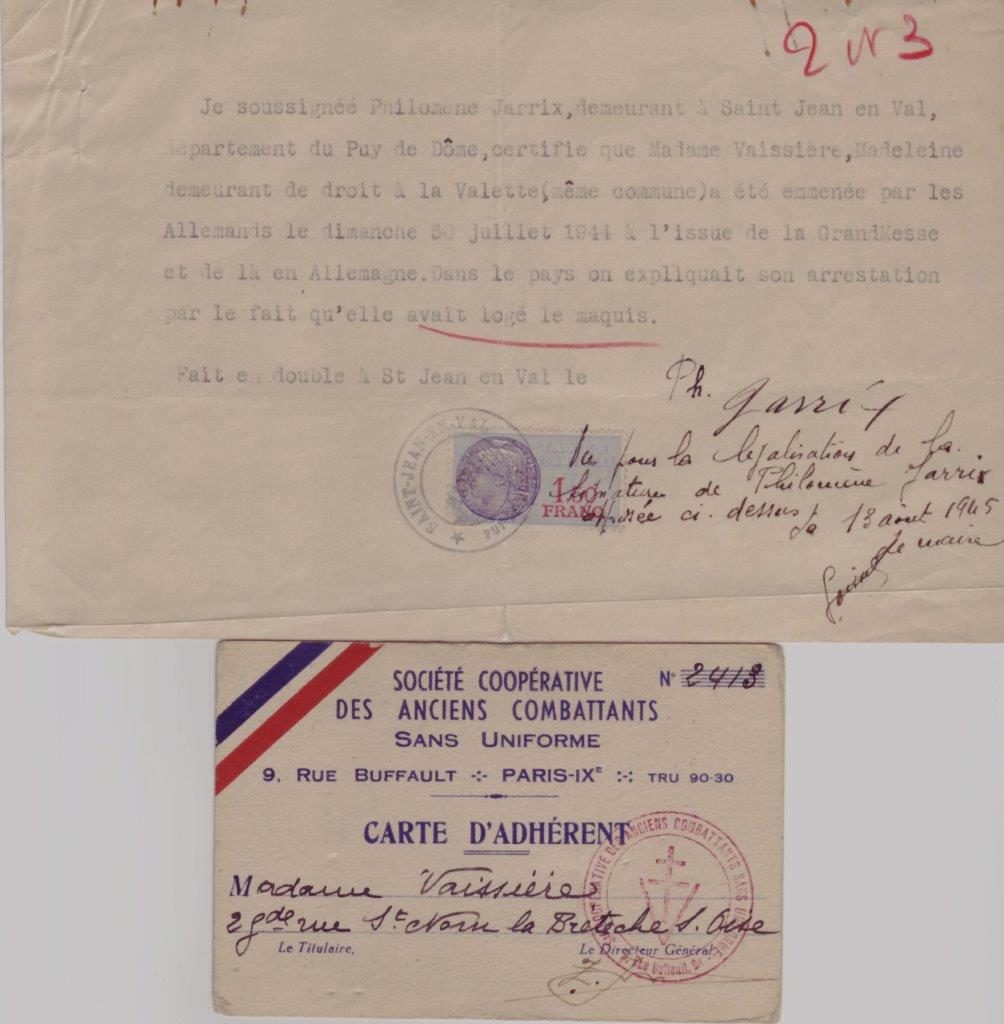 2 N 3
Je soussignéé Philomene Jarrix,demeurant à Saint Jean en Val,
département du Puy de Dôme,certifie que Madame Vaissière,Madeleine
demeurant de droit à la Valette(même commune)a été emmenée par les
Allemands le dimanche 30 juillet 1944 à l'issue de la GrandMesse
et de là en Allemagne.Dans le pays on expliquait son arrestation
par le fait qu'elle avait logé le maquis.
Fait en double à St Jean en Val le
Ph. Jarrix
Vu pour la légalisation de la
signature de Philomène Jarrix
apposée ci-dessus
Le 13 août 1945
Le maire
SAINT-JEAN-EN-VAL
PUY
1.50
FRANC
SOCIÉTÉ COOPÉRATIVE N° 2413
DES ANCIENS COMBATTANTS
SANS UNIFORME
9, RUE BUFFAULT -:- PARIS-IXE :-: TRU 90-30
CARTE D'ADHÉRENT
Madame Vaissière
2 gde rue St Nom la Bretèche S. Oise
Le Titulaire, Le Directeur Général,
COOPÉRATIVE DES ANCIENS COMBATTANTS SANS UNIFORME
Rue Buffault